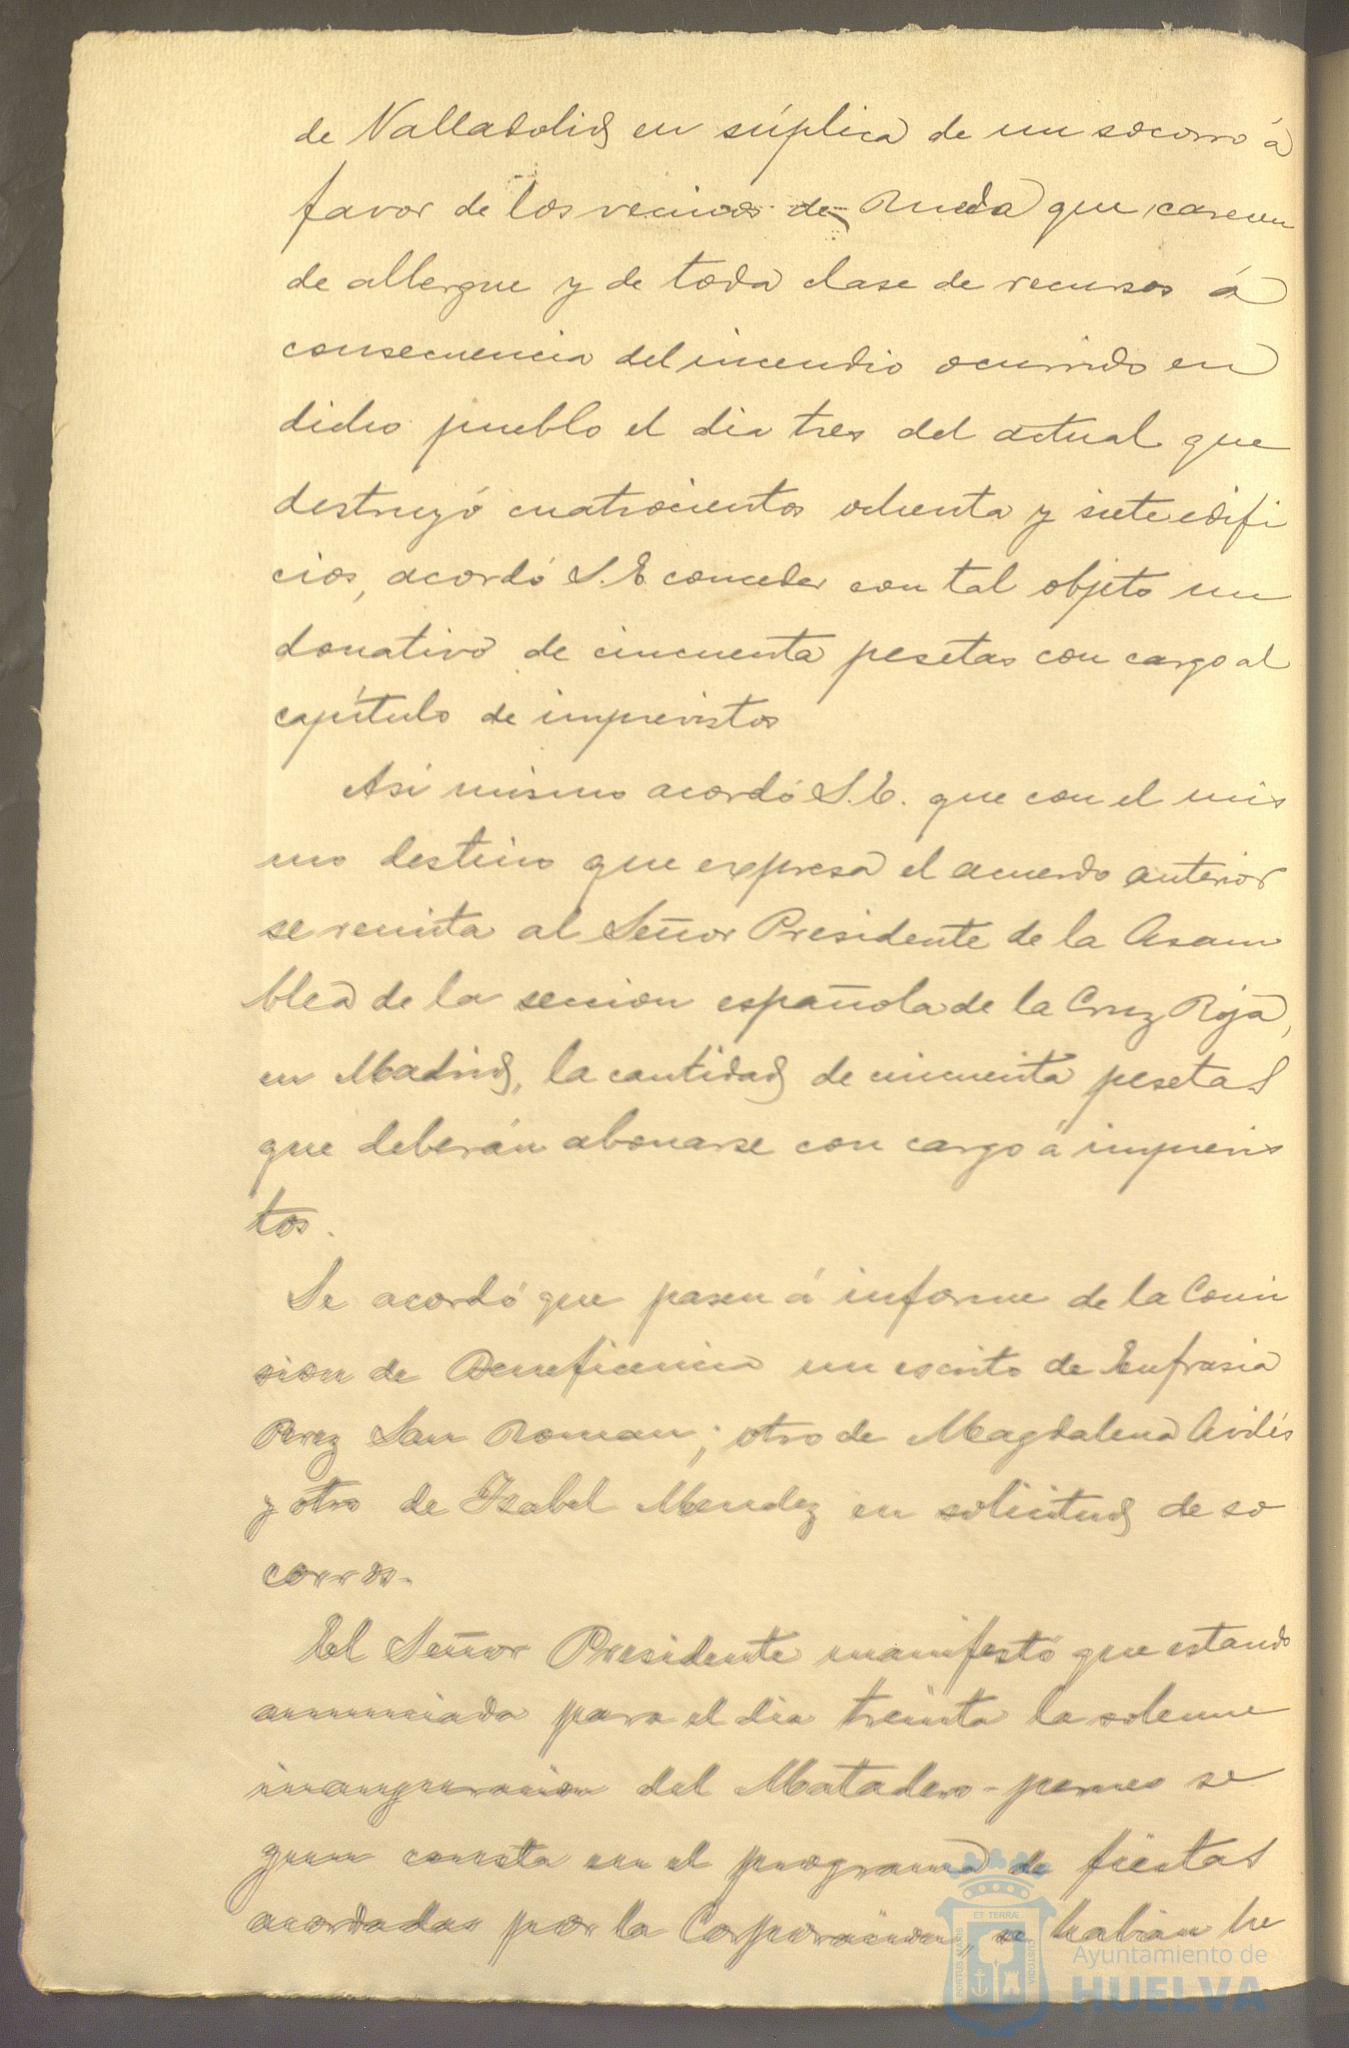 de Valladolid en súplica de un socorro á
favor de los vecinos de Rueda que carecen
de albergue y de toda clase de recursos á
consecuencia del incendio ocurrido en
dicho pueblo el dia tres del actual que
destruyó cuatrocientos ochenta y siete edifi
cios, acordó S. E conceder con tal objeto un
donativo de cincuenta pesetas con cargo al
capítulo de imprevistos
Asi mismo acordó S. E. que con el mis
mo destino que expresa el acuerdo anterior
se remita al Señor Presidente de la Asam
blea de la seccion española de la Cruz Roja,
en Madrid, la cantidad de cincuenta pesetas
que deberán abonarse con cargo á imprevis
tos.
Se acordó que pasen á informe de la Comi
sion de Beneficencia un escrito de Eufrasia
Perez San Roman; otro de Magdalena Avilés
y otro de Isabel Mendez en solicitud de so
corros.
El Señor Presidente manifestó que estando
anunciada para el dia treinta la solemne
inauguracion del Matadero - se
gun consta en el programa de fiestas
acordadas por la Corporacion, se habian he
ET TERRÆ
PORTUS MARIS
CUSTODIA
Ayuntamiento de
HUELVA